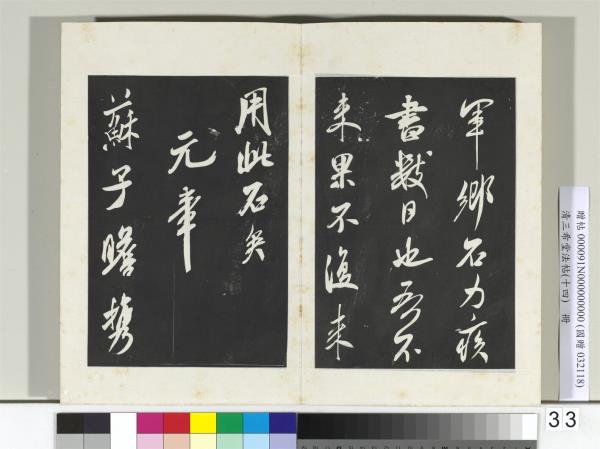 軍鄉石力疾
書數日也吾不
来果不復来
用此石矣
元章
蘇子瞻攜
贈帖 000091N000000000 (國贈 032118)
清三希堂法帖(十四) 冊
33